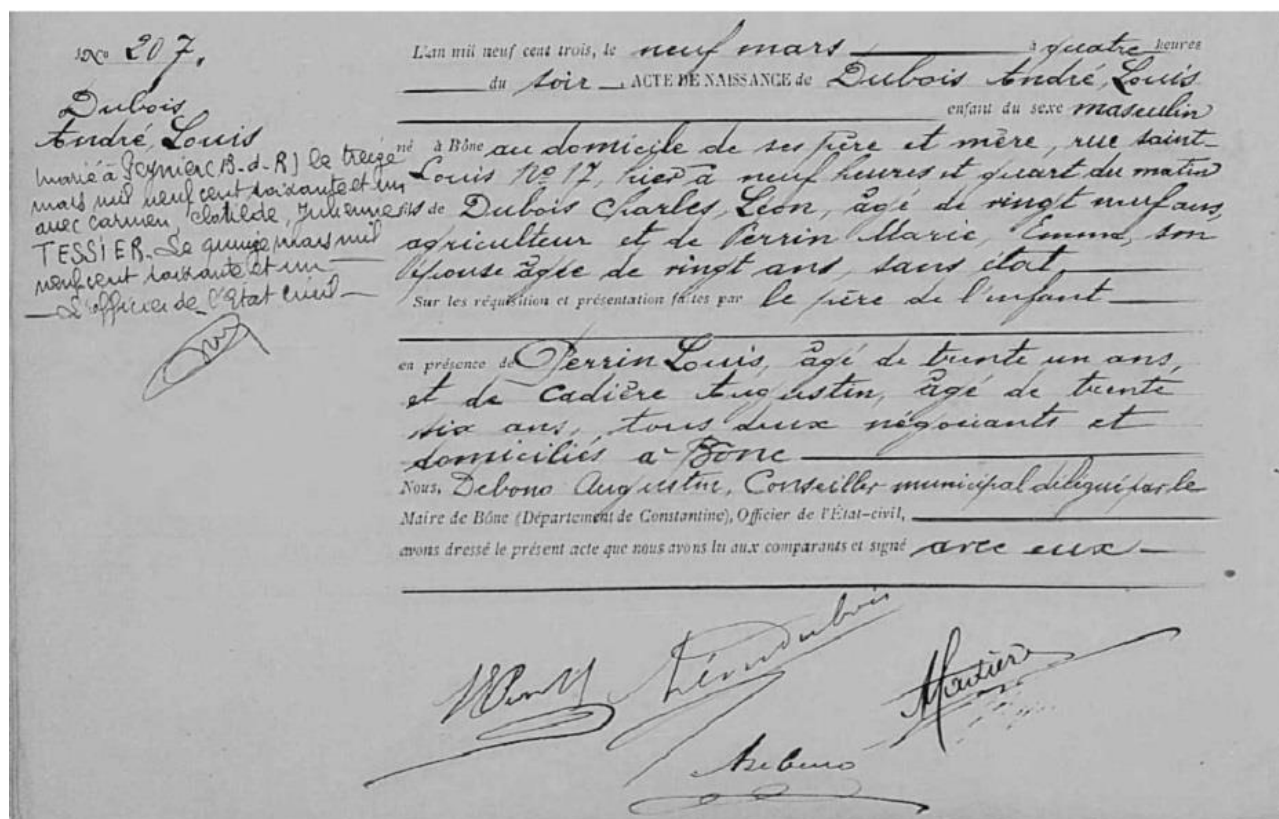 No 207.
Dubois
André, Louis
marié à Peynier (B-d-R) le treize
mars mil neuf cent soixante et un
avec Carmen, Clotilde, Julienne
TESSIER. Le quinze mars mil
neuf cent soixante et un
L'officier de l'Etat Civil
L'an mil neuf cent trois, le neuf mars à quatre heures
du soir, ACTE DE NAISSANCE de Dubois André, Louis
enfant du sexe masculin
né à Bône au domicile de ses père et mère, rue saint-
Louis No 17, hier à neuf heures et quart du matin
fils de Dubois Charles, Léon, âgé de vingt neuf ans,
agriculteur et de Perrin Marie, Emma, son
épouse âgée de vingt ans, sans état
Sur les réquisition et présentation faites par le père de l'enfant
en présence de Perrin Louis, âgé de trente un ans,
et de Cadière Augustin, âgé de trente
six ans, tous deux négociants et
domiciliés à Bône
Nous, Debono Augustin, Conseiller municipal délégué par le
Maire de Bône (Département de Constantine), Officier de l'État-civil,
avons dressé le présent acte que nous avons lu aux comparants et signé avec eux
Léon Dubois
Debono